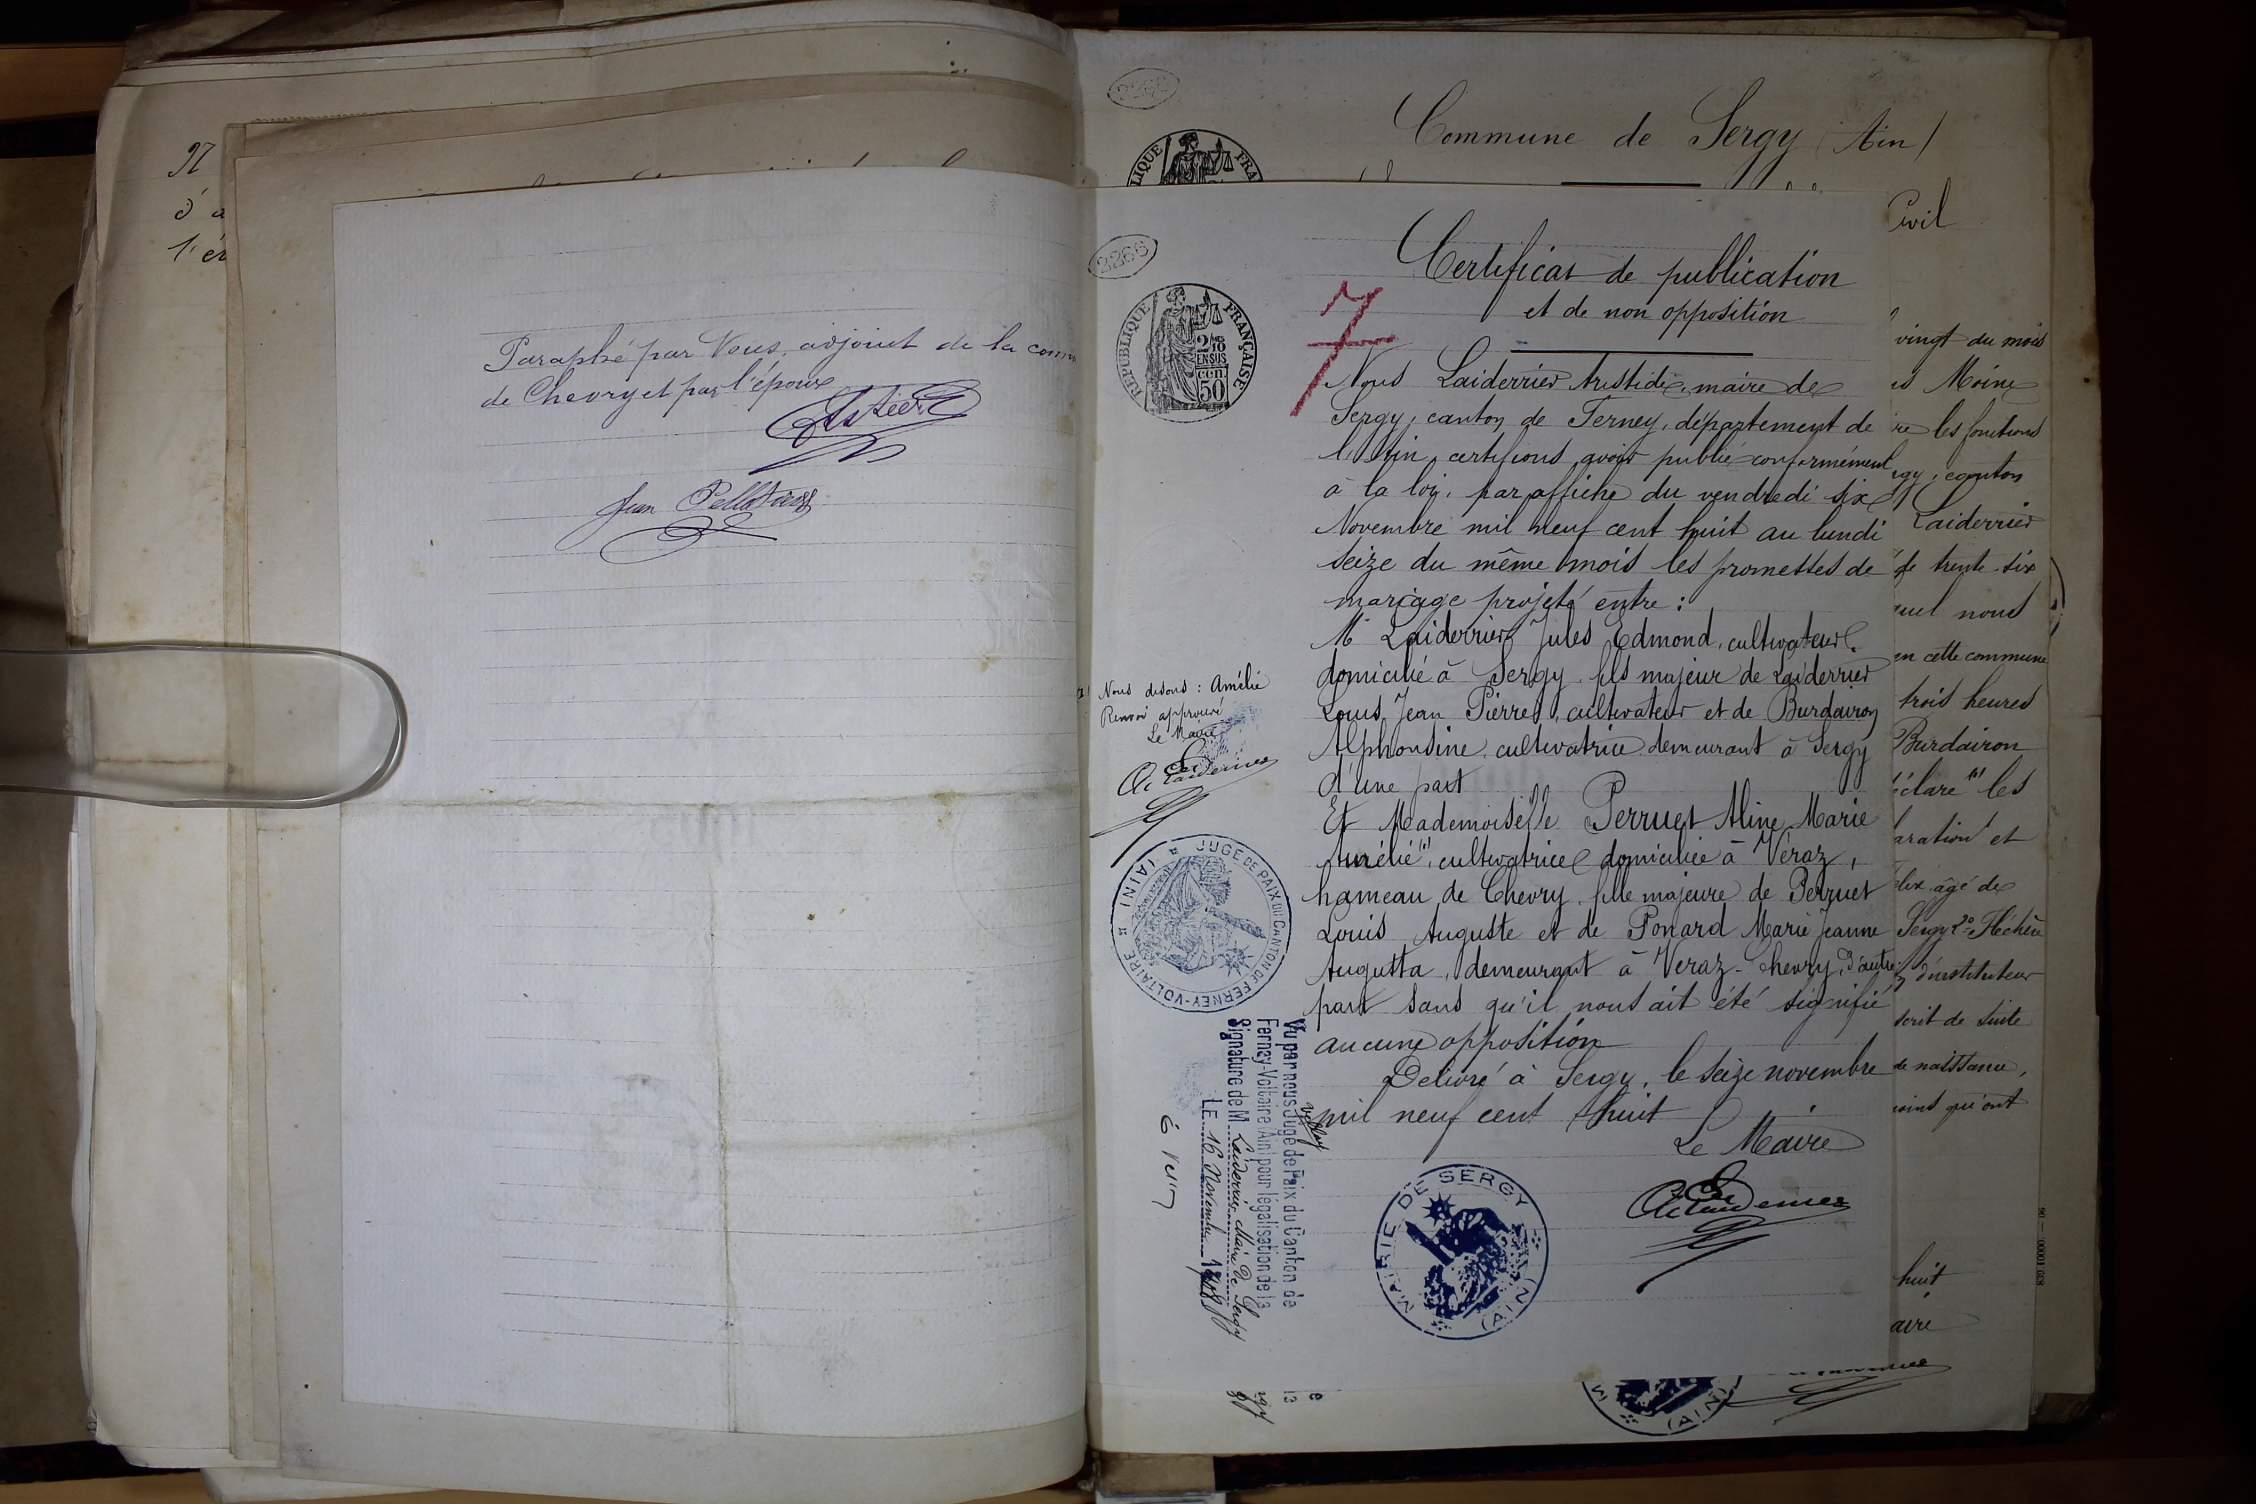 N
d'a
l'ér
Paraphé par Nous, adjoint de la comm
de Chevry et par l'époux
Jean Pelletier
2266
Commune de Sergy (Ain)
LIQUE FRA
2266
RÉPUBLIQUE FRANÇAISE
2/10
EN SUS
50
7
Certificat de publication
et de non opposition
Nous Laiderrier Aristide, maire de
Sergy, canton de Ferney, département de
l'Ain, certifions avoir publié conformément
à la loi, par affiche du vendredi six
Novembre mil neuf cent huit au lundi
seize du même mois les promettes de
mariage projeté entre :
Mr Laiderrier Jules Edmond, cultivateur
domicilié à Sergy fils majeur de Laiderrier
Louis Jean Pierre, cultivateur et de Burdairon
Alphonsine, cultivatrice demeurant à Sergy
d'une part
Et Mademoiselle Perruet Aline Marie
Aurélie (1), cultivatrice domiciliée à Véraz,
hameau de Chevry, fille majeure de Perruet
Louis Auguste et de Ponard Marie Jeanne
Augusta, demeurant à Veraz-Chevry, d'autre
part sans qu'il nous ait été signifié
aucune opposition
Delivré à Sergy, le seize novembre
mil neuf cent huit
Le Maire
A. Laiderrier
MAIRIE DE SERGY (AIN)
Nous disons : Amélie
Renvoi approuvé
Le Maire
A. Laiderrier
JUGE DE PAIX DU CANTON DE FERNEY-VOLTAIRE (AIN)
Vu par nous Juge de Paix du Canton de
Ferney-Voltaire (Ain) pour légalisation de la
Signature de M. Laiderrier, Maire de Sergy
LE 16 Novembre 1908
Civil
vingt du mois
es Moine
re les fonctions
rgy, canton
Laiderrier
de trente-six
quel nous
en cette commune
trois heures
Burdairon
éclaré (1) les
aration et
élix âgé de
Sergy 2° Fléchère
d'instituteur
scrit de suite
de naissance,
oins qu'ont
huit
aire
830.10000. — 06
(AIN) M